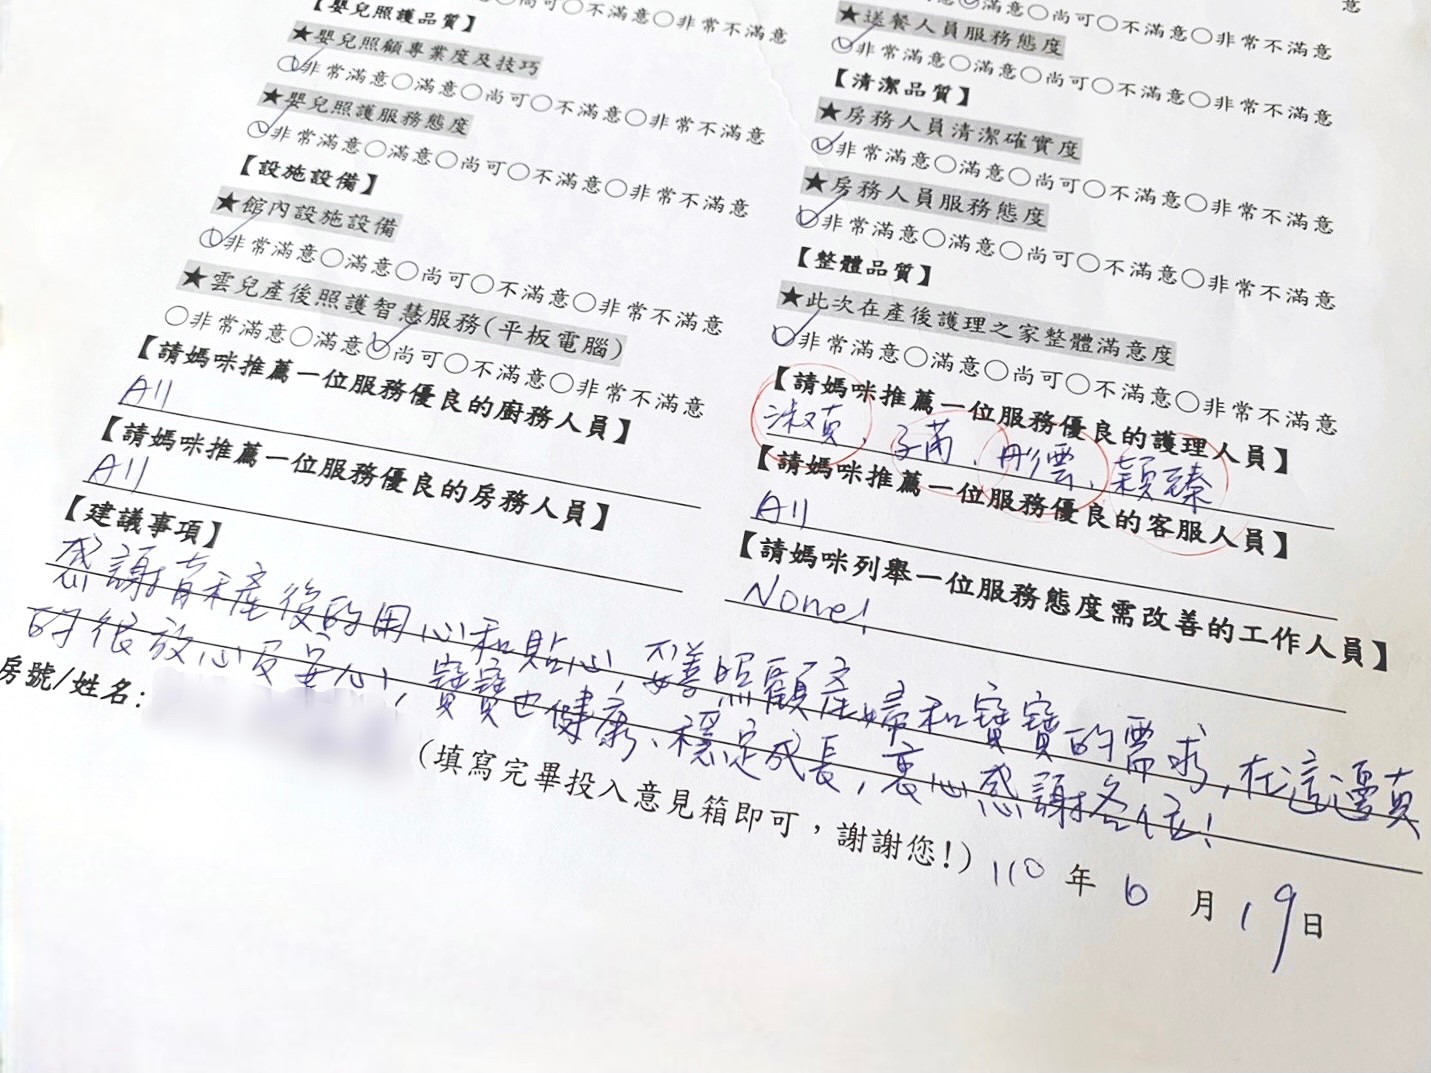 【嬰兒照護品質】
★嬰兒照顧專業度及技巧
○非常滿意○滿意○尚可○不滿意○非常不滿意
★嬰兒照護服務態度
○非常滿意○滿意○尚可○不滿意○非常不滿意
【設施設備】
★館內設施設備
○非常滿意○滿意○尚可○不滿意○非常不滿意
★雲兒產後照護智慧服務(平板電腦)
○非常滿意○滿意○尚可○不滿意○非常不滿意
【請媽咪推薦一位服務優良的廚務人員】
All
【請媽咪推薦一位服務優良的房務人員】
All
★送餐人員服務態度
○非常滿意○滿意○尚可○不滿意○非常不滿意
【清潔品質】
★房務人員清潔確實度
○非常滿意○滿意○尚可○不滿意○非常不滿意
★房務人員服務態度
○非常滿意○滿意○尚可○不滿意○非常不滿意
【整體品質】
★此次在產後護理之家整體滿意度
○非常滿意○滿意○尚可○不滿意○非常不滿意
【請媽咪推薦一位服務優良的護理人員】
淑真、子芮、彤雲、穎臻
【請媽咪推薦一位服務優良的客服人員】
All
【請媽咪列舉一位服務態度需改善的工作人員】
None!
【建議事項】
感謝青禾產後的用心和貼心,妥善照顧產婦和寶寶的需求,在這邊真
的很放心及安心,寶寶也健康、穩定成長,衷心感謝各位!
房號/姓名:
(填寫完畢投入意見箱即可,謝謝您!) 110 年 6 月 19 日